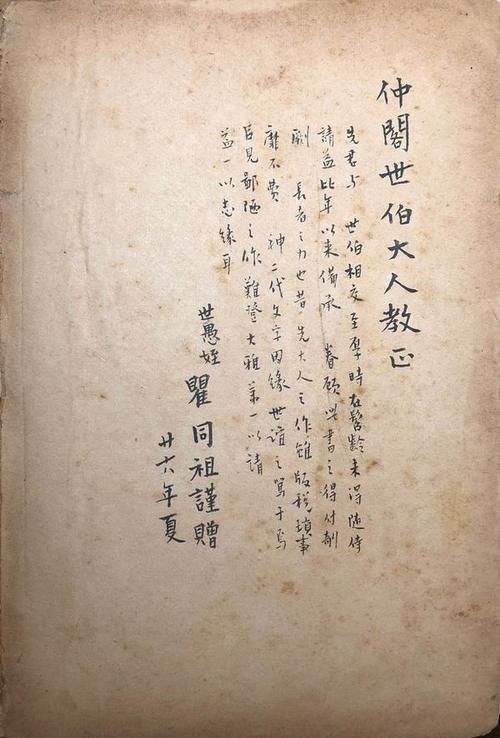 仲閣世伯大人教正
先君与 世伯相交至厚時在髫齡未得隨侍
請益比年以来備承 眷顧此書之得付剞
劂 長者之力也昔 先大人之作雖版税瑣事
靡不費 神二代文字因緣世誼之篤于焉
見鄙陋之作難登大雅第一以請
益一以志緣耳
世愚姪 瞿同祖謹贈
廿六年夏